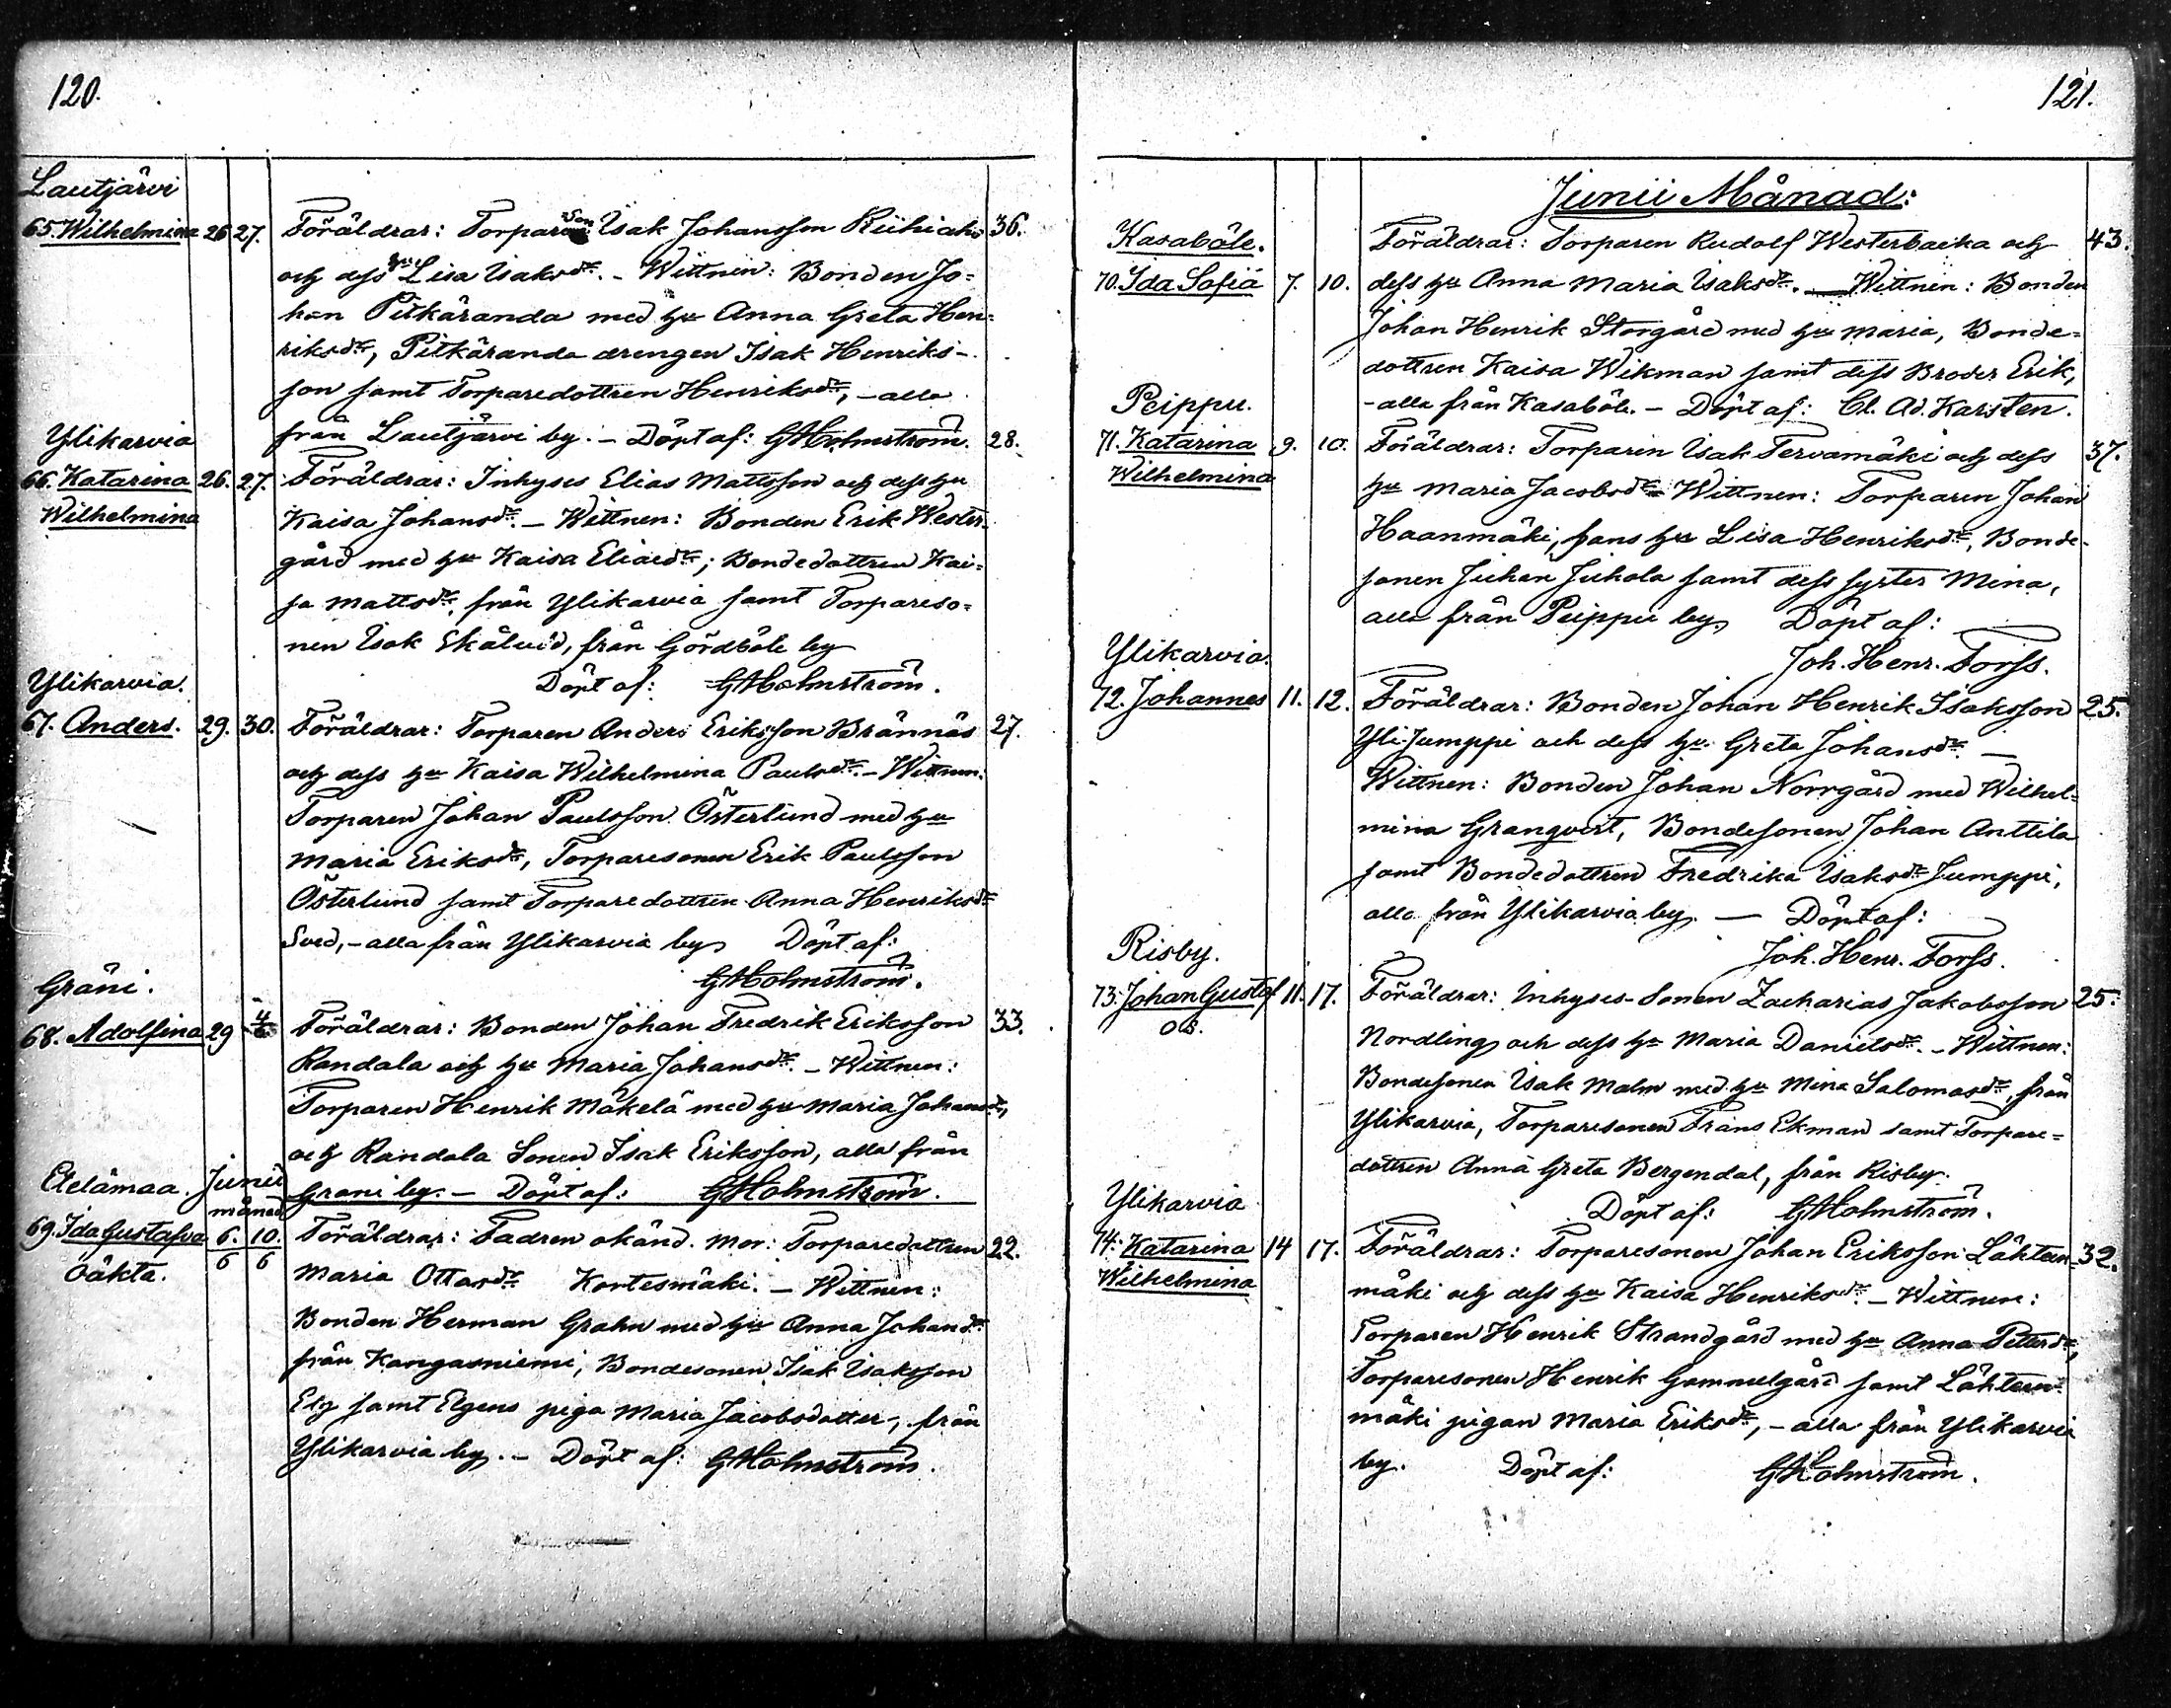 120.
Lautjärvi
65. Wilhelmina 26 27. Föräldrar: Torpare Son Isak Johansson Riihiaho 36.
och dess hu Lisa Isaksdr. - Wittnen: Bonden Jo-
han Pitkäranda med hu Anna Greta Hen-
riksdr, Pitkäranda drengen Isak Henriks-
son samt Torparedottren Henriksdr, - alla
från Lautjärvi by. - Döpt af: GHolmström.
Ylikarvia 28.
66. Katarina 26. 27. Föräldrar: Inhyses Elias Mattsson och dess hu
Wilhelmina Kaisa Johansdr. - Wittnen: Bonden Erik Wester-
gård med hu Kaisa Eliaedr; Bondedottren Kai-
sa Mattsdr, från Ylikarvia samt Torpareso-
nen Isak, från Gördböle by
Döpt af: GHolmström.
Ylikarvia.
67. Anders. 29. 30. Föräldrar: Torparen Anders Eriksson Brännäs 27.
och dess hu Kaisa Wilhelmina Paulsdr. - Wittnen:
Torparen Johan Paulsson Österlund med hu
Maria Eriksdr, Torparesonen Erik Paulsson
Österlund samt Torparedottren Anna Henriksdr
Sved, - alla från Ylikarvia by Döpt af:
GHolmström.
Gräni.
68. Adolfina 29 4/6 Föräldrar: Bonden Johan Fredrik Eriksson 33.
Randala och hu Maria Johansdr. - Wittnen:
Torparen Henrik Mäkelä med hu Maria Johansdr,
och Randala Sonen Isak Eriksson, alla från
Grani by. - Döpt af: GHolmström.
Etelämaa. Junii
månad
69. Ida Gustafva 6./6 10./6 Föräldrar: Fadren okänd. Mor: Torparedottren 22.
Oäkta. Maria Ottosdr Kortesmäki. - Wittnen:
Bonden Herman Grahn med hu Anna Johansdr
från Kangasniemi, Bondesonen Isak Isaksson
Elg samt Elgens piga Maria Jacobsdotter, från
Ylikarvia by. - Döpt af: GHolmström.
121.
Junii Månad:
Kasaböle. Föräldrar: Torparen Rudolf Westerbacka och 43.
70. Ida Sofia 7. 10. dess hu Anna Maria Isaksdr. - Wittnen: Bonden
Johan Henrik Storgård med hu Maria, Bonde-
dottren Kaisa Wikman samt dess Broder Erik,
Peippu. - alla från Kasaböle. - Döpt af: Cl. Ad. Karsten.
71. Katarina 9. 10. Föräldrar: Torparen Isak Tervamäki och dess 37.
Wilhelmina hu Maria Jacobsdr - Wittnen: Torparen Johan
Haanmäki, hans hu Lisa Henriksdr, Bonde-
sonen Juhan Juhola samt dess syster Mina,
alla från Peippu by, Döpt af:
Ylikarvia. Joh. Henr. Forss.
72. Johannes 11. 12. Föräldrar: Bonden Johan Henrik Isaksson 25.
Yli-Jumppi och dess hu. Greta Johansdr. -
Wittnen: Bonden Johan Norrgård med Wilhel-
mina Granqvist, Bondesonen Johan Anttila
samt Bondedottren Fredrika Isaksdr Jumppi,
alla från Ylikarvia by. - Döpt af:
Risby. Joh. Henr. Forss.
73. Johan Gustaf 11. 17. Föräldrar: Inhyses-Sonen Zacharias Jakobsson 25.
Nordling och dess hu Maria Danielsdr. - Wittnen:
Bondesonen Isak Malm med hu Mina Salomosdr, från
Ylikarvia, Torparesonen Frans Ekman samt Torpare-
dottren Anna Greta Bergendal, från Risby.
Ylikarvia Döpt af: GHolmström.
74. Katarina 14 17. Föräldrar: Torparesonen Johan Eriksson Lähteen- 32.
Wilhelmina mäki och dess hu Kaisa Henriksdr. - Wittnen:
Torparen Henrik Strandgård med hu Anna Petersdr,
Torparesonen Henrik Gammelgård samt Lähteen-
mäki pigan Maria Eriksdr, - alla från Ylikarvia
by. Döpt af: GHolmström.